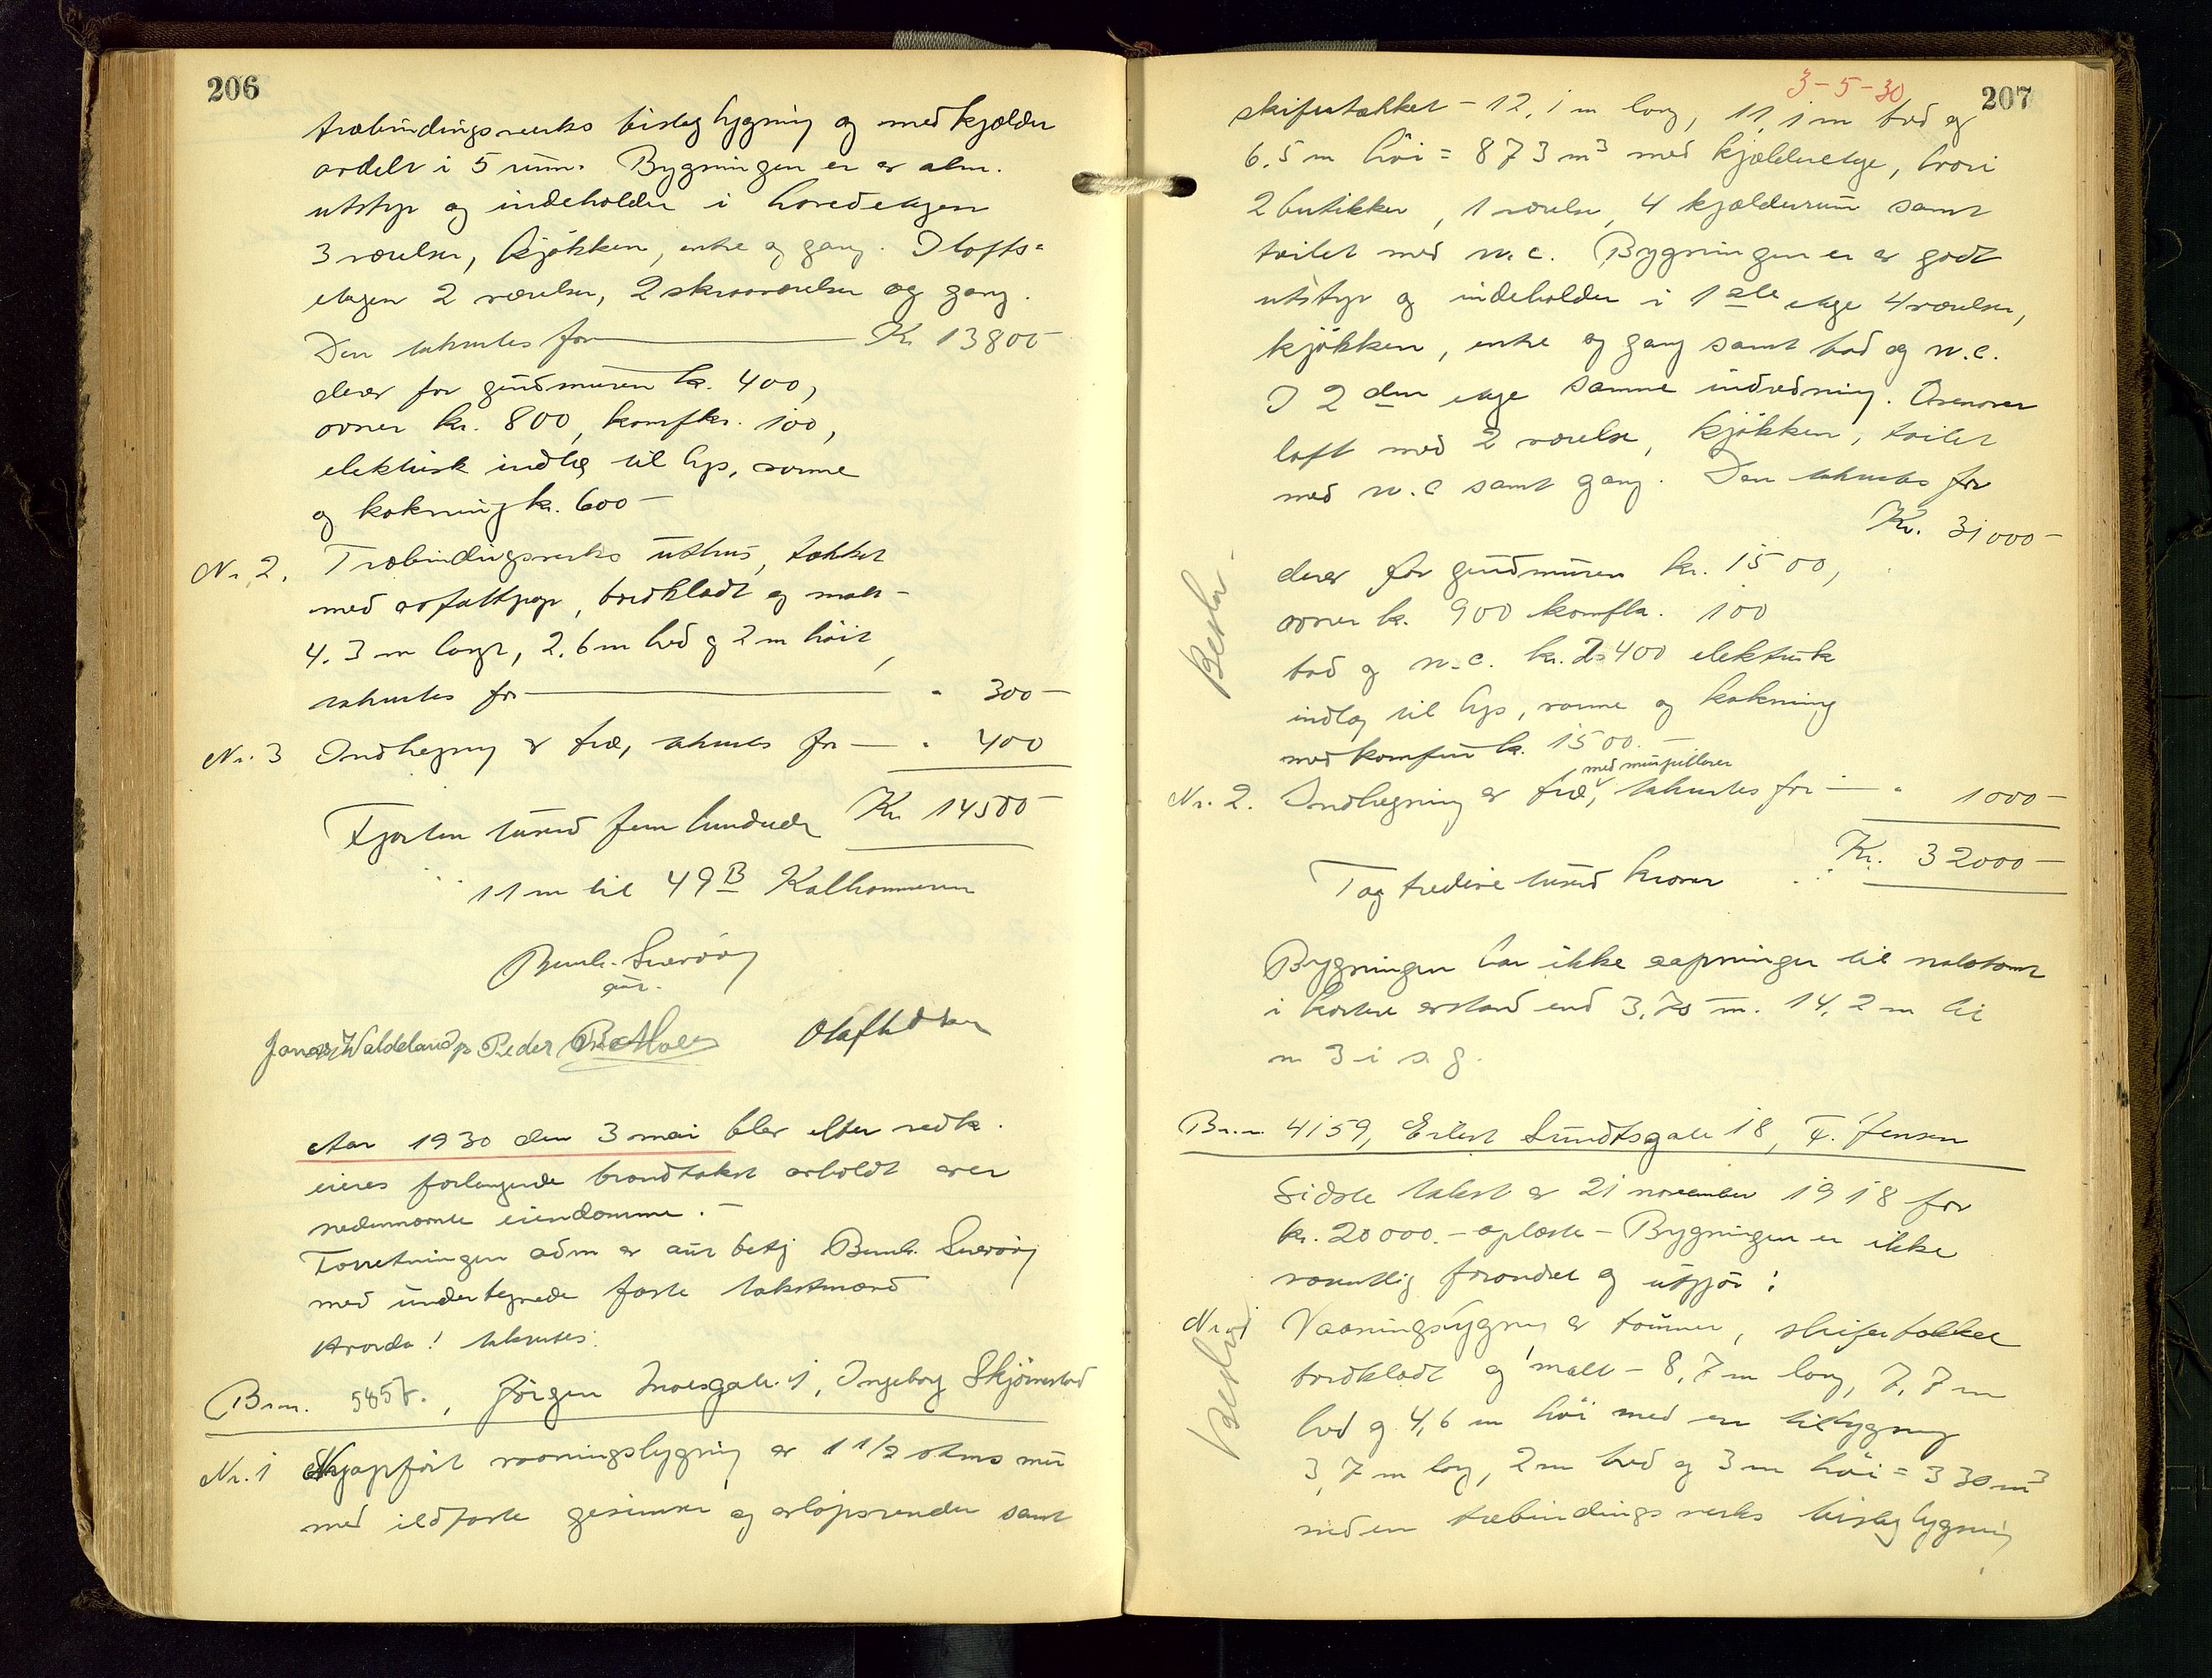 206
træbindingsverks bislagbygning og med kjælder
avdelt i 5 rum. Bygningen er av alm.
utstyr og indeholder i hovedetagen
3 værelser, kjøkken, entre og gang. I lofts-
etagen 2 værelser, 2 skraaværelser og gang.
Den takseres for Kr 13800-
derav for grundmuren kr. 400,
ovner kr. 800, komf kr. 100,
elektrisk indlæg til lys, varme
og kokning kr. 600-
Nr. 2. Træbindingsverks uthus, tækket
med asfaltpap, bordklædt og malt -
4.3 m langt, 2.6 m bred og 2 m høit,
takseres for " 300-
Nr. 3 Indhegning av træ, takseres for - " 400
Fjorten tusend fem hundrede Kr 14500-
11 m til 49B Kalhammeren
Bernh.
aut.
Jonas Valdeland Peder
Aar 1930 den 3 mai blev efter vedk.
eieres forlangende brandtakst avholdt over
nedennævnte eiendomme. -
Forretningen adm av aut betj Bernh.
med undertegnede faste takstmænd
Hvorda! takseres:
Br.nr. 5457., Jørgen Moesgate 1, Ingeborg Skjørestad
Nr. 1 Nyopført vaaningsbygning av 1 1/2 stens mur
med ildfaste gesimser og avløpsrender samt
3-5-30
207
skifertækket - 12,1 m lang, 11,1 m bred og
6.5 m høi = 873 m³ med kjælderetage, hvori
2 butikker, 1 værelse, 4 kjælderrum samt
toilet med w.c. Bygningen er av godt
utstyr og indeholder i 1ste etage 4 værelser,
kjøkken, entre og gang samt bad og w.c.
I 2den etage samme indredning. Ovenover
loft med 2 værelse, kjøkken, toilet
med w.c samt gang. Den takseres for
Kr. 31000-
derav for grundmuren kr. 1500,
ovner kr. 900 komf kr. 100
bad og w.c. kr. 2400 elektrisk
indlæg til lys, varme og kokning
med komfur kr. 1500.-
med murpillarer
Nr. 2. Indhegning av træ, takseres for - " 1000-
To og tredive tusend kroner Kr. 32000-
Bygningen har ikke aapninger til nabotomt
i kortere avstand end 3,70 m. 14,2 m til
nr 3 i s. g.
Br.nr. 4159, Eilert Sundtsgate 18, T. Jensen
Sidste takst av 21 november 1918 for
kr. 20000.- oplæste - Bygningen er ikke
væsentlig forandret og utgjør:
Nr. 1 Vaaningsbygning av tømmer, skifertækket
bordklædt og malt - 8,7 m lang, 7,7 m
bred og 4,6 m høi med en tilbygning
3,7 m lang, 2 m bred og 3 m høi = 330 m³
med en træbindings verks bislagbygning